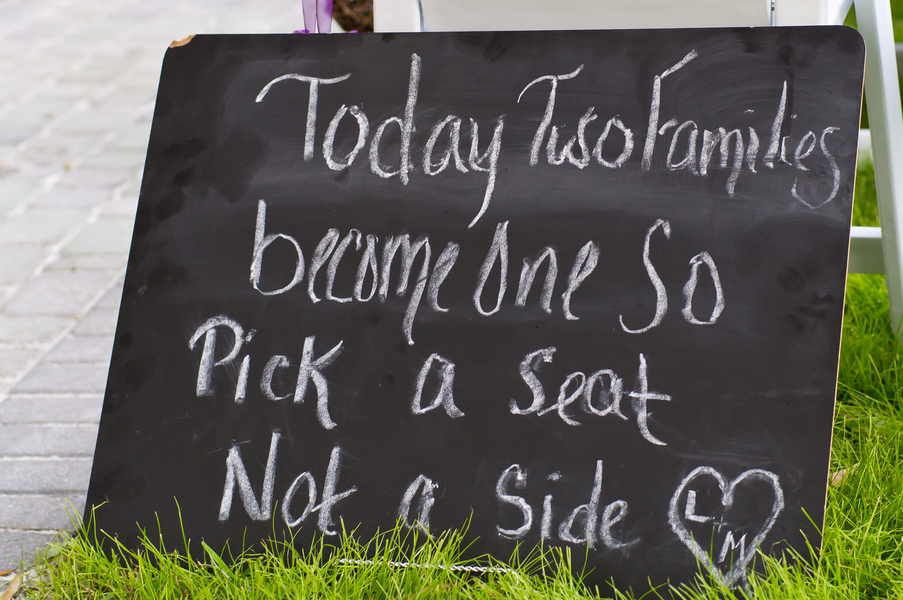 Today Two Families
become One So
Pick a Seat
Not a Side
L + M